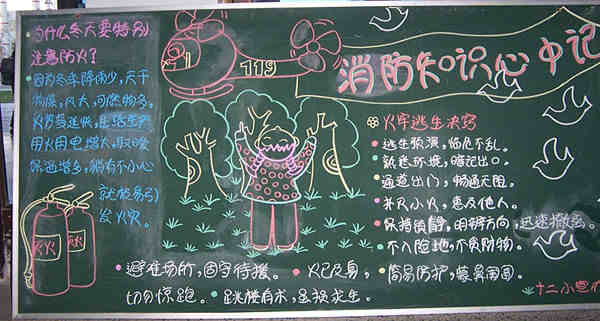 为什么冬天要特别
注意防火？
因为冬季降雨少，天干
物燥，风大，可燃物多。
火势蔓延快，且居生产
用火用电增大，取暖
保温增多，稍有不小心
就极易引
发火灾。
灭火
灭火
119
消防知识心中记
火灾逃生决窍
逃生预演，临危不乱。
熟悉环境，暗记出口。
通道出门，畅通无阻。
扑灭小火，惠及他人。
保持镇静，明辨方向，迅速撤离。
不入险地，不贪财物。
简易防护，蒙鼻匍匐。
避难场所，固守待援。
火已及身，
切勿惊跑。
跳楼有术，虽损求生。